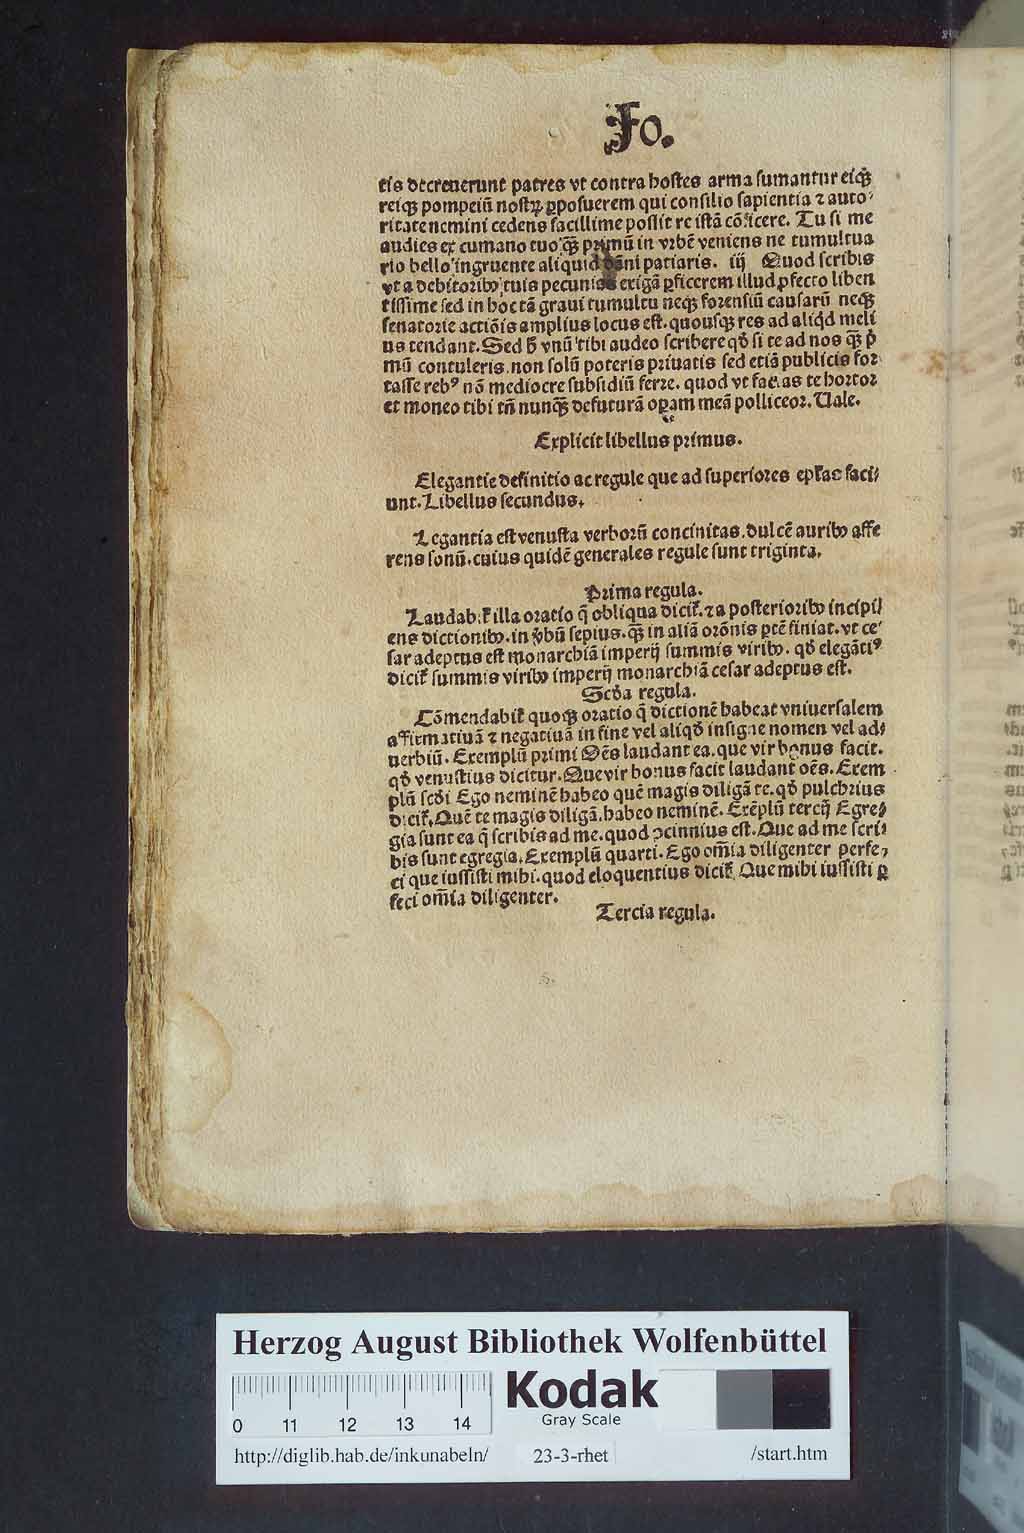 Fo.
tis decreuerunt patres vt contra hostes arma sumantur eiqꝫ
reiqꝫ pompeiū nostꝝ ꝓposuerem qui consilio sapientia ⁊ auto
ritate nemini cedens facillime possit rē istā cōficere. Tu si me
audies ex cumano tuo qꝫ̄ primū in vrbē veniens ne tumultua
rio bello ingruente aliquid dāni patiaris. iij Quod scribis
vt a debitoribꝰ tuis pecunias exigā ꝑficerem illud ꝓfecto liben
tissime sed in hoc tā graui tumultu neqꝫ forensiū causarū neqꝫ
senatorie actiōis amplius locus est. quousqꝫ res ad aliqd meli
us tendant. Sed h̄ vnū tibi audeo scribere qð si te ad nos qꝫ̄ p̄
mū contuleris. non solū poteris priuatis sed etiā publicis for
tasse rebꝰ nō mediocre subsidiū ferre. quod vt facias te hortor
et moneo tibi tn̄ nunqꝫ̄ defuturā oꝑam meā polliceor. Uale.
Explicit libellus primus.
Elegantie definitio ac regule que ad superiores epl̄as faci⸗
unt. Libellus secundus.
Legantia est venusta verborū concinitas. dulcē auribꝰ affe
rens sonū. cuius quidē generales regule sunt triginta.
Prima regula.
Laudabit̄ illa oratio q̄ obliqua dicit̄. ⁊ a posterioribꝰ incipi⸗
ens dictionibꝰ. in v̄bū sepius. qꝫ̄ in aliā orōnis ptē finiat. vt ce⸗
sar adeptus est monarchiā imperij summis viribꝰ. qð elegātiꝰ
dicit̄ summis viribꝰ imperij monarchiā cesar adeptus est.
Scd̄a regula.
Cōmendabit̄ quoqꝫ oratio q̄ dictionē habeat vniuersalem
affirmatiuā ⁊ negatiuā in fine vel aliqð insigne nomen vel ad⸗
uerbiū. Exemplū primi Oēs laudant ea. que vir bonus facit.
qð venustius dicitur. Que vir bonus facit laudant oēs. Exem
plū scd̄i Ego neminē habeo quē magis diligā te. qð pulchrius
dicit̄. Quē te magis diligā. habeo neminē. Exēplū tercij Egre⸗
gia sunt ea q̄ scribis ad me. quod ꝯcinnius est. Que ad me scri⸗
bis sunt egregia. Exemplū quarti. Ego om̄ia diligenter perfe⸗
ci que iussisti mihi. quod eloquentius dicit̄. Que mihi iussisti ꝑ
feci om̄ia diligenter.
Tercia regula.
Herzog August Bibliothek Wolfenbüttel
0 11 12 13 14
Kodak
Gray Scale
http://diglib.hab.de/inkunabeln/ 23-3-rhet /start.htm